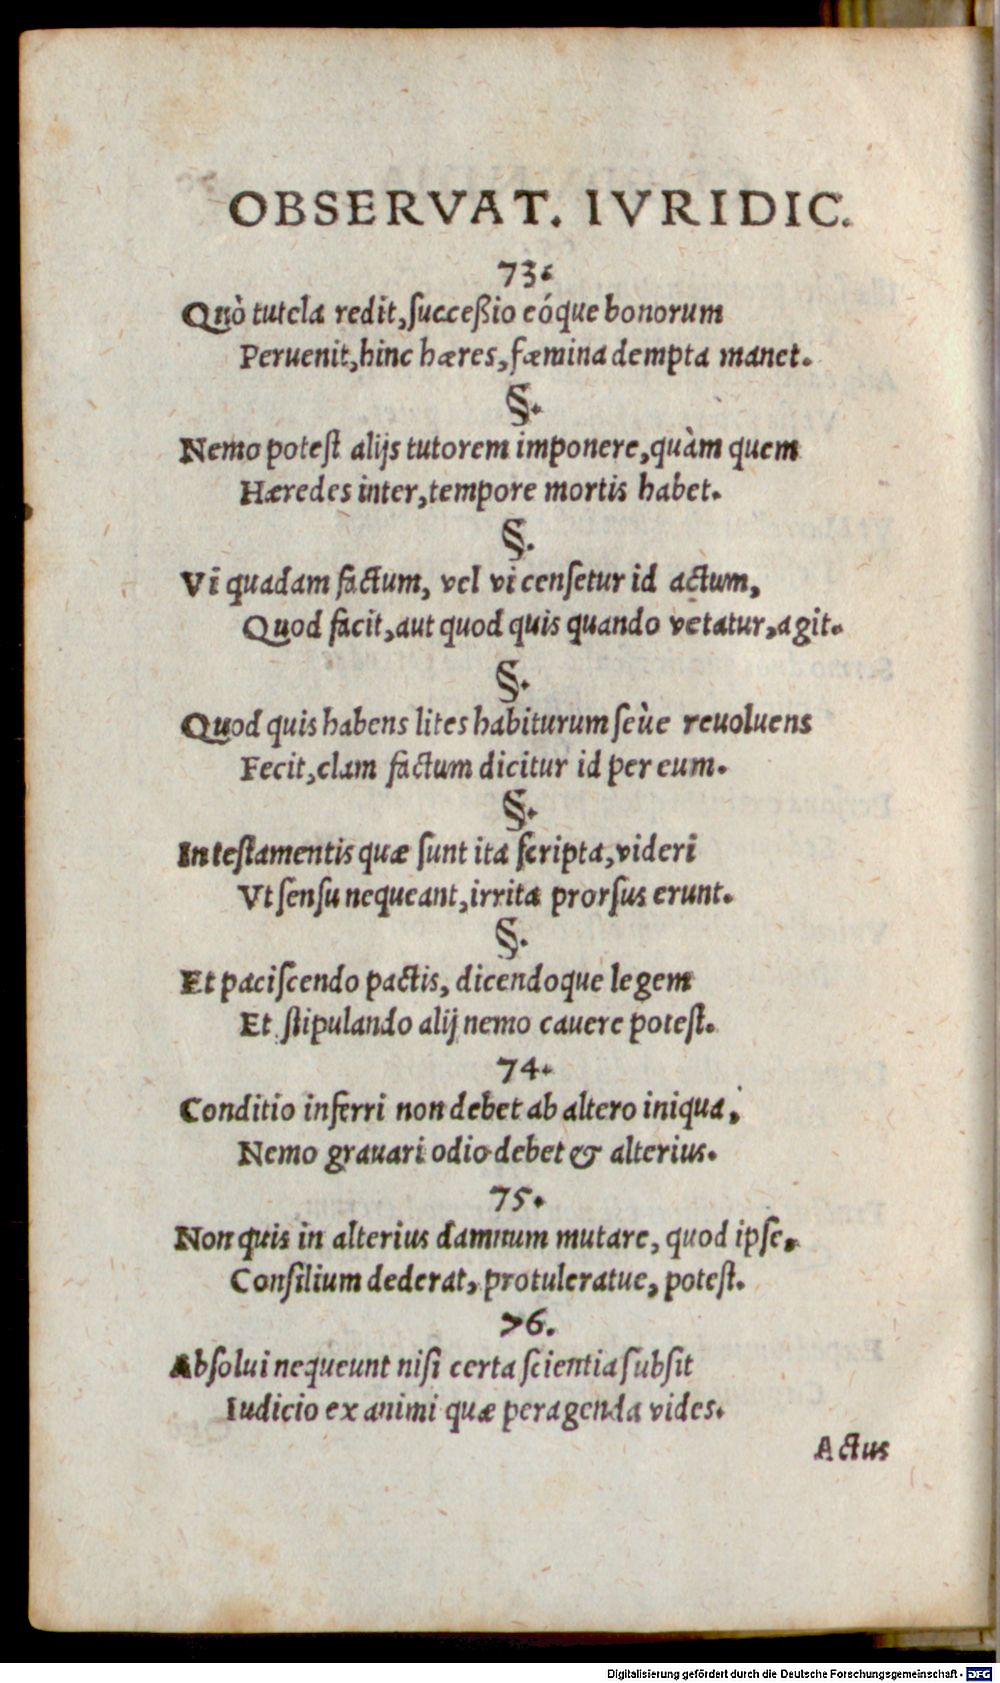 OBSERVAT. IVRIDIC.
73.
Quò tutela redit, succeßio eóque bonorum
Peruenit, hinc hæres, fæmina dempta manet.
§.
Nemo potest alijs tutorem imponere, quàm quem
Hæredes inter, tempore mortis habet.
§.
Vi quadam factum, vel vi censetur id actum,
Quod facit, aut quod quis quando vetatur, agit.
§.
Quod quis habens lites habiturum seùe reuoluens
Fecit, clam factum dicitur id per eum.
§.
In testamentis quæ sunt ita scripta, videri
Vt sensu nequeant, irrita prorsus erunt.
§.
Et paciscendo pactis, dicendoque legem
Et stipulando alij nemo cauere potest.
74.
Conditio inferri non debet ab altero iniqua,
Nemo grauari odio debet & alterius.
75.
Non quis in alterius damnum mutare, quod ipse,
Consilium dederat, protuleratue, potest.
76.
Absolui nequeunt nisi certa scientia subsit
Iudicio ex animi quæ peragenda vides.
Actus
Digitalisierung gefördert durch die Deutsche Forschungsgemeinschaft - DFG